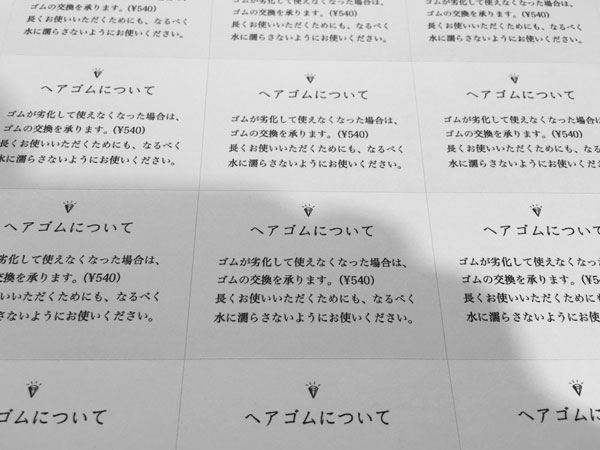 ゴムの交換を承ります。(¥540)
長くお使いいただくためにも、なるべく
水に濡らさないようにお使いください。
ゴムの交換を承ります。(¥540)
長くお使いいただくためにも、なるべく
水に濡らさないようにお使いください。
ゴムの交換を承ります。(¥540)
長くお使いいただくためにも、なるべく
水に濡らさないようにお使いくだ
ヘアゴムについて
ゴムが劣化して使えなくなった場合は、
ゴムの交換を承ります。(¥540)
長くお使いいただくためにも、なるべく
水に濡らさないようにお使いください。
ヘアゴムについて
ゴムが劣化して使えなくなった場合は、
ゴムの交換を承ります。(¥540)
長くお使いいただくためにも、なるべく
水に濡らさないようにお使いください。
ヘアゴムについて
ゴムが劣化して使えなくなった場合は、
ゴムの交換を承ります。(¥540)
長くお使いいただくためにも、なるべく
水に濡らさないようにお使いください。
ヘアゴムについて
が劣化して使えなくなった場合は、
交換を承ります。(¥540)
いいただくためにも、なるべく
さないようにお使いください。
ヘアゴムについて
ゴムが劣化して使えなくなった場合は、
ゴムの交換を承ります。(¥540)
長くお使いいただくためにも、なるべく
水に濡らさないようにお使いください。
ヘアゴムについて
ゴムが劣化して使えなくなった場
ゴムの交換を承ります。(¥5
長くお使いいただくためにも
水に濡らさないようにお使い
ゴムについて
ヘアゴムについて
ヘアゴムに